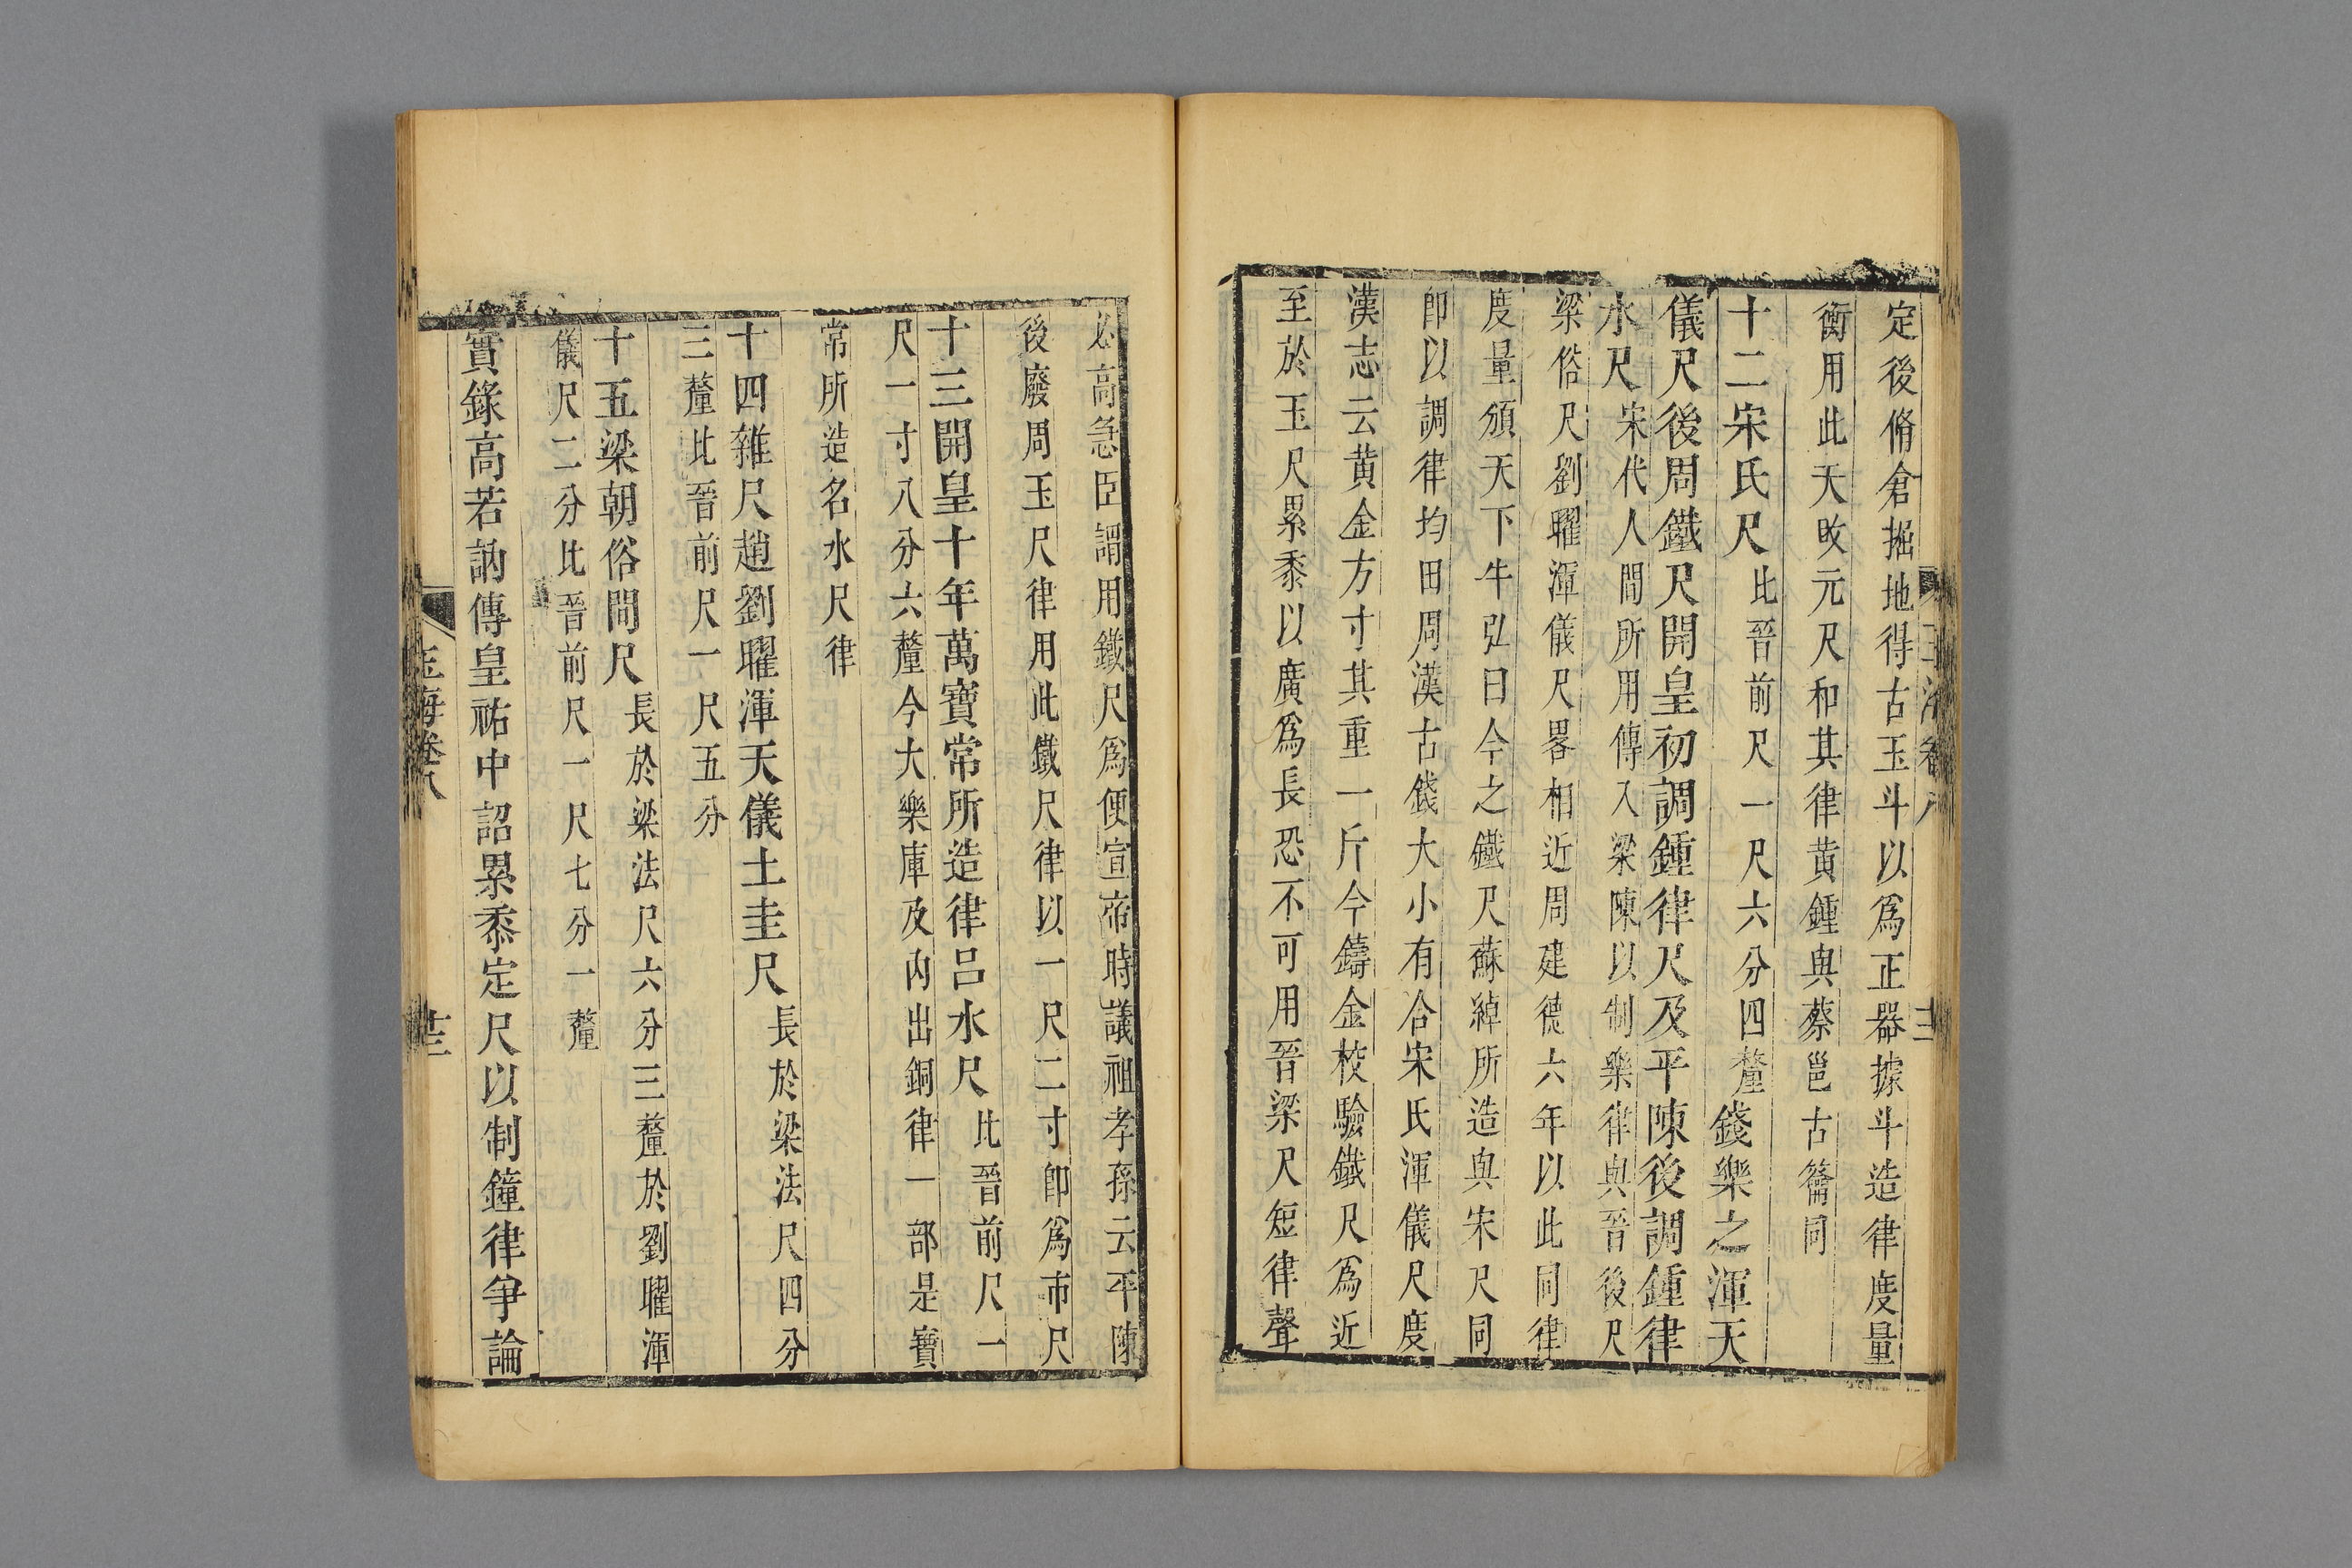 定後脩倉掘地得古玉斗以爲正器據斗造律度量
衡用此天攺元尺和其律黄鍾與蔡邕古籥同
十二宋氏尺比晉前尺一尺六分四釐錢樂之渾天
儀尺後周鐵尺開皇初調鍾律尺及平陳後調鍾律
水尺宋代人間所用傳入梁陳以制樂律與晉後尺
梁俗尺劉曜渾儀尺畧相近周建德六年以此同律
度量頒天下牛弘曰今之鐵尺蘇綽所造與宋尺同
卽以調律均田周漢古錢大小有合宋氏渾儀尺度
漢志云黄金方寸其重一斤今鑄金校驗鐵尺爲近
至於玉尺累黍以廣爲長恐不可用晉梁尺短律聲
必高急臣謂用鐵尺爲便宣帝時議祖孝孫云平陳
後廢周玉尺律用此鐵尺律以一尺二寸卽爲市尺
十三開皇十年萬寶常所造律呂水尺比晉前尺一
尺一寸八分六釐今大樂庫及內出銅律一部是寶
常所造名水尺律
十四雜尺趙劉曜渾天儀土圭尺長於梁法尺四分
三釐比晉前尺一尺五分
十五梁朝俗間尺長於梁法尺六分三釐於劉曜渾
儀尺二分比晉前尺一尺七分一釐
實錄高若訥傳皇祐中詔累黍定尺以制鐘律爭論
玉海卷八